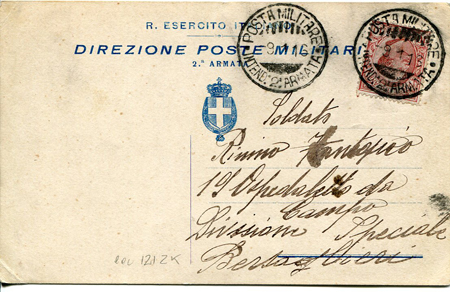 R. ESERCITO IT
DIREZIONE POSTE MILITARI
2.ª ARMATA
POSTA MILITARE
INTEND. 2ª ARMATA
POSTA MILITARE
INTEND. 2ª ARMATA
Soldato
19 Ospedaletto da
Campo
Divisione Speciale
Bersaglieri